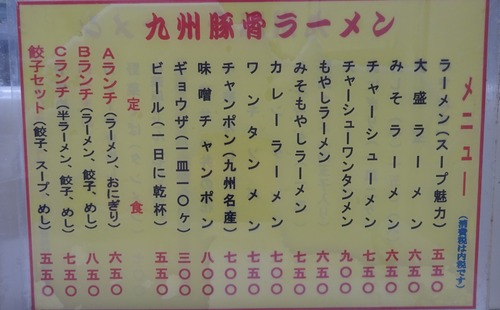 九州豚骨ラーメン
メニュー
(消費税は内税です)
ラーメン(スープ魅力) 五五〇
大盛ラーメン 六五〇
みそラーメン 六五〇
チャーシューメン 七五〇
チャーシューワンタンメン 九〇〇
もやしラーメン 六五〇
みそもやしラーメン 七五〇
カレーラーメン 七五〇
ワンタンメン 七五〇
チャンポン(九州名産) 七〇〇
味噌チャンポン 八〇〇
ギョウザ(一皿一〇ヶ) 三〇〇
ビール(一日に乾杯) 五五〇
定食
Aランチ(ラーメン、おにぎり) 六五〇
Bランチ(ラーメン、餃子、めし) 八五〇
Cランチ(半ラーメン、餃子、めし) 七五〇
餃子セット(餃子、スープ、めし) 五五〇